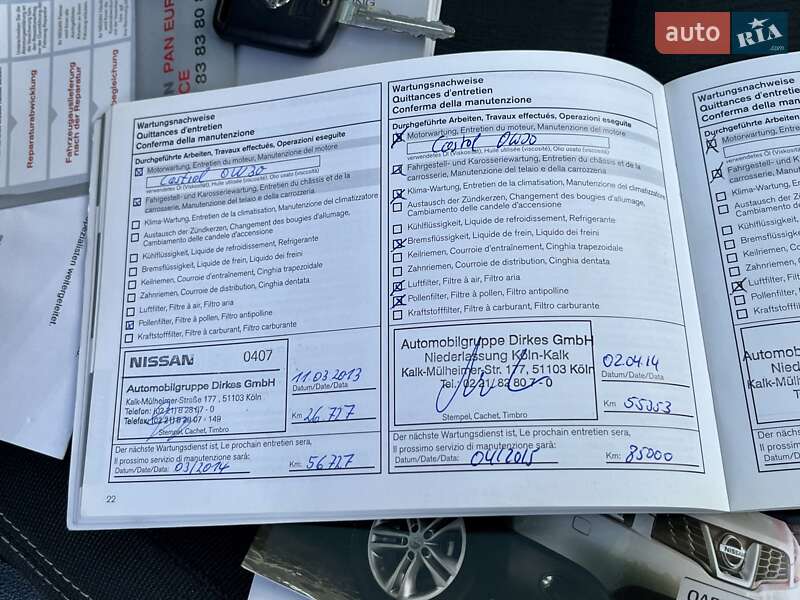 auto RIA.com
PAN EUR
83 83 80
Reparaturabwicklung
Fahrzeugauslieferung
nach der Reparatur
Spezialisten weitergeleitet.
Wartungsnachweise
Quittances d'entretien
Conferma della manutenzione
Durchgeführte Arbeiten, Travaux effectués, Operazioni eseguite
Motorwartung, Entretien du moteur, Manutenzione del motore
Castrol 0W30
verwendetes Öl (Viskosität), Huile utilisée (viscosité), Olio usato (viscosità)
Fahrgestell- und Karosseriewartung, Entretien du châssis et de la
carrosserie, Manutenzione del telaio e della carrozzeria.
Klima-Wartung, Entretien de la climatisation, Manutenzione del climatizzatore
Austausch der Zündkerzen, Changement des bougies d'allumage,
Cambiamento delle candele d'accensione
Kühlflüssigkeit, Liquide de refroidissement, Refrigerante
Bremsflüssigkeit, Liquide de frein, Liquido dei freini
Keilriemen, Courroie d'entraînement, Cinghia trapezoidale
Zahnriemen, Courroie de distribution, Cinghia dentata
Luftfilter, Filtre à air, Filtro aria
Pollenfilter, Filtre à pollen, Filtro antipolline
Kraftstofffilter, Filtre à carburant, Filtro carburante
NISSAN 0407
Automobilgruppe Dirkes GmbH
Kalk-Mülheimer-Straße 177, 51103 Köln
Telefon: (02 21) 8 28 07 - 0
Telefax: (02 21) 8 28 07 - 149
Stempel, Cachet, Timbro
11.03.2013
Datum/Date/Data
Km 26.727
Der nächste Wartungsdienst ist, Le prochain entretien sera,
Il prossimo servizio di manutenzione sarà:
Datum/Date/Data: 03/2014 Km: 56727
22
Wartungsnachweise
Quittances d'entretien
Conferma della manutenzione
Durchgeführte Arbeiten, Travaux effectués, Operazioni eseguite
Motorwartung, Entretien du moteur, Manutenzione del motore
Castrol 0W30
verwendetes Öl (Viskosität), Huile utilisée (viscosité), Olio usato (viscosità)
Fahrgestell- und Karosseriewartung, Entretien du châssis et de la
carrosserie, Manutenzione del telaio e della carrozzeria.
Klima-Wartung, Entretien de la climatisation, Manutenzione del climatizzatore
Austausch der Zündkerzen, Changement des bougies d'allumage,
Cambiamento delle candele d'accensione
Kühlflüssigkeit, Liquide de refroidissement, Refrigerante
Bremsflüssigkeit, Liquide de frein, Liquido dei freini
Keilriemen, Courroie d'entraînement, Cinghia trapezoidale
Zahnriemen, Courroie de distribution, Cinghia dentata
Luftfilter, Filtre à air, Filtro aria
Pollenfilter, Filtre à pollen, Filtro antipolline
Kraftstofffilter, Filtre à carburant, Filtro carburante
Automobilgruppe Dirkes GmbH
Niederlassung Köln-Kalk
Kalk-Mülheimer Str. 177, 51103 Köln
Tel.: 02 21/ 82 80 7-0
Stempel, Cachet, Timbro
02.04.14
Datum/Date/Data
Km 55353
Der nächste Wartungsdienst ist, Le prochain entretien sera,
Il prossimo servizio di manutenzione sarà:
Datum/Date/Data: 04/2015 Km: 85000
Wartungsnachweise
Quittances d'entretien
Conferma della manutenzione
Durchgeführte Arbeiten,
Motorwartung, Entretien
verwendetes Öl (Viskosität),
Fahrgestell- und
carrosserie,
Klima-Wartung,
Austausch der
Cambiamento
Kühlflüssigkeit
Bremsflüssig
Keilriemen,
Zahnriemen,
Luftfilter, F
Pollenfilter,
Kraftstofffilter
Automobil
Nieder
Kalk-Mülh
Te
Stempel
Der nächste
Il prossimo
Datum/Date
NISSAN